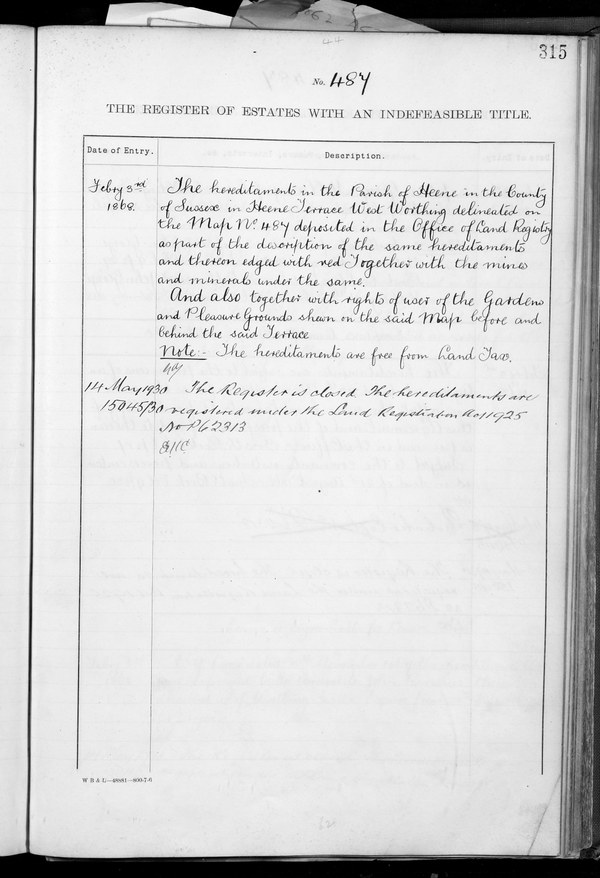 315
No. 487
THE REGISTER OF ESTATES WITH AN INDEFEASIBLE TITLE.
Date of Entry.
Description.
Febry 3rd
1868.
The hereditaments in the Parish of Heene in the County
of Sussex in Heene Terrace West Worthing delineated on
the Map No. 487 deposited in the Office of Land Registry
as part of the description of the same hereditaments
and thereon edged with red Together with the mines
and minerals under the same.
And also together with rights of user of the Gardens
and Pleasure Grounds shewn on the said Map before and
behind the said Terrace
Note:- The hereditaments are free from Land Tax.
14 May 1930
15045/30
The Register is closed. The hereditaments are
registered under the Land Registration Act 1925
No P62313
W B & L—48881—800-7-6